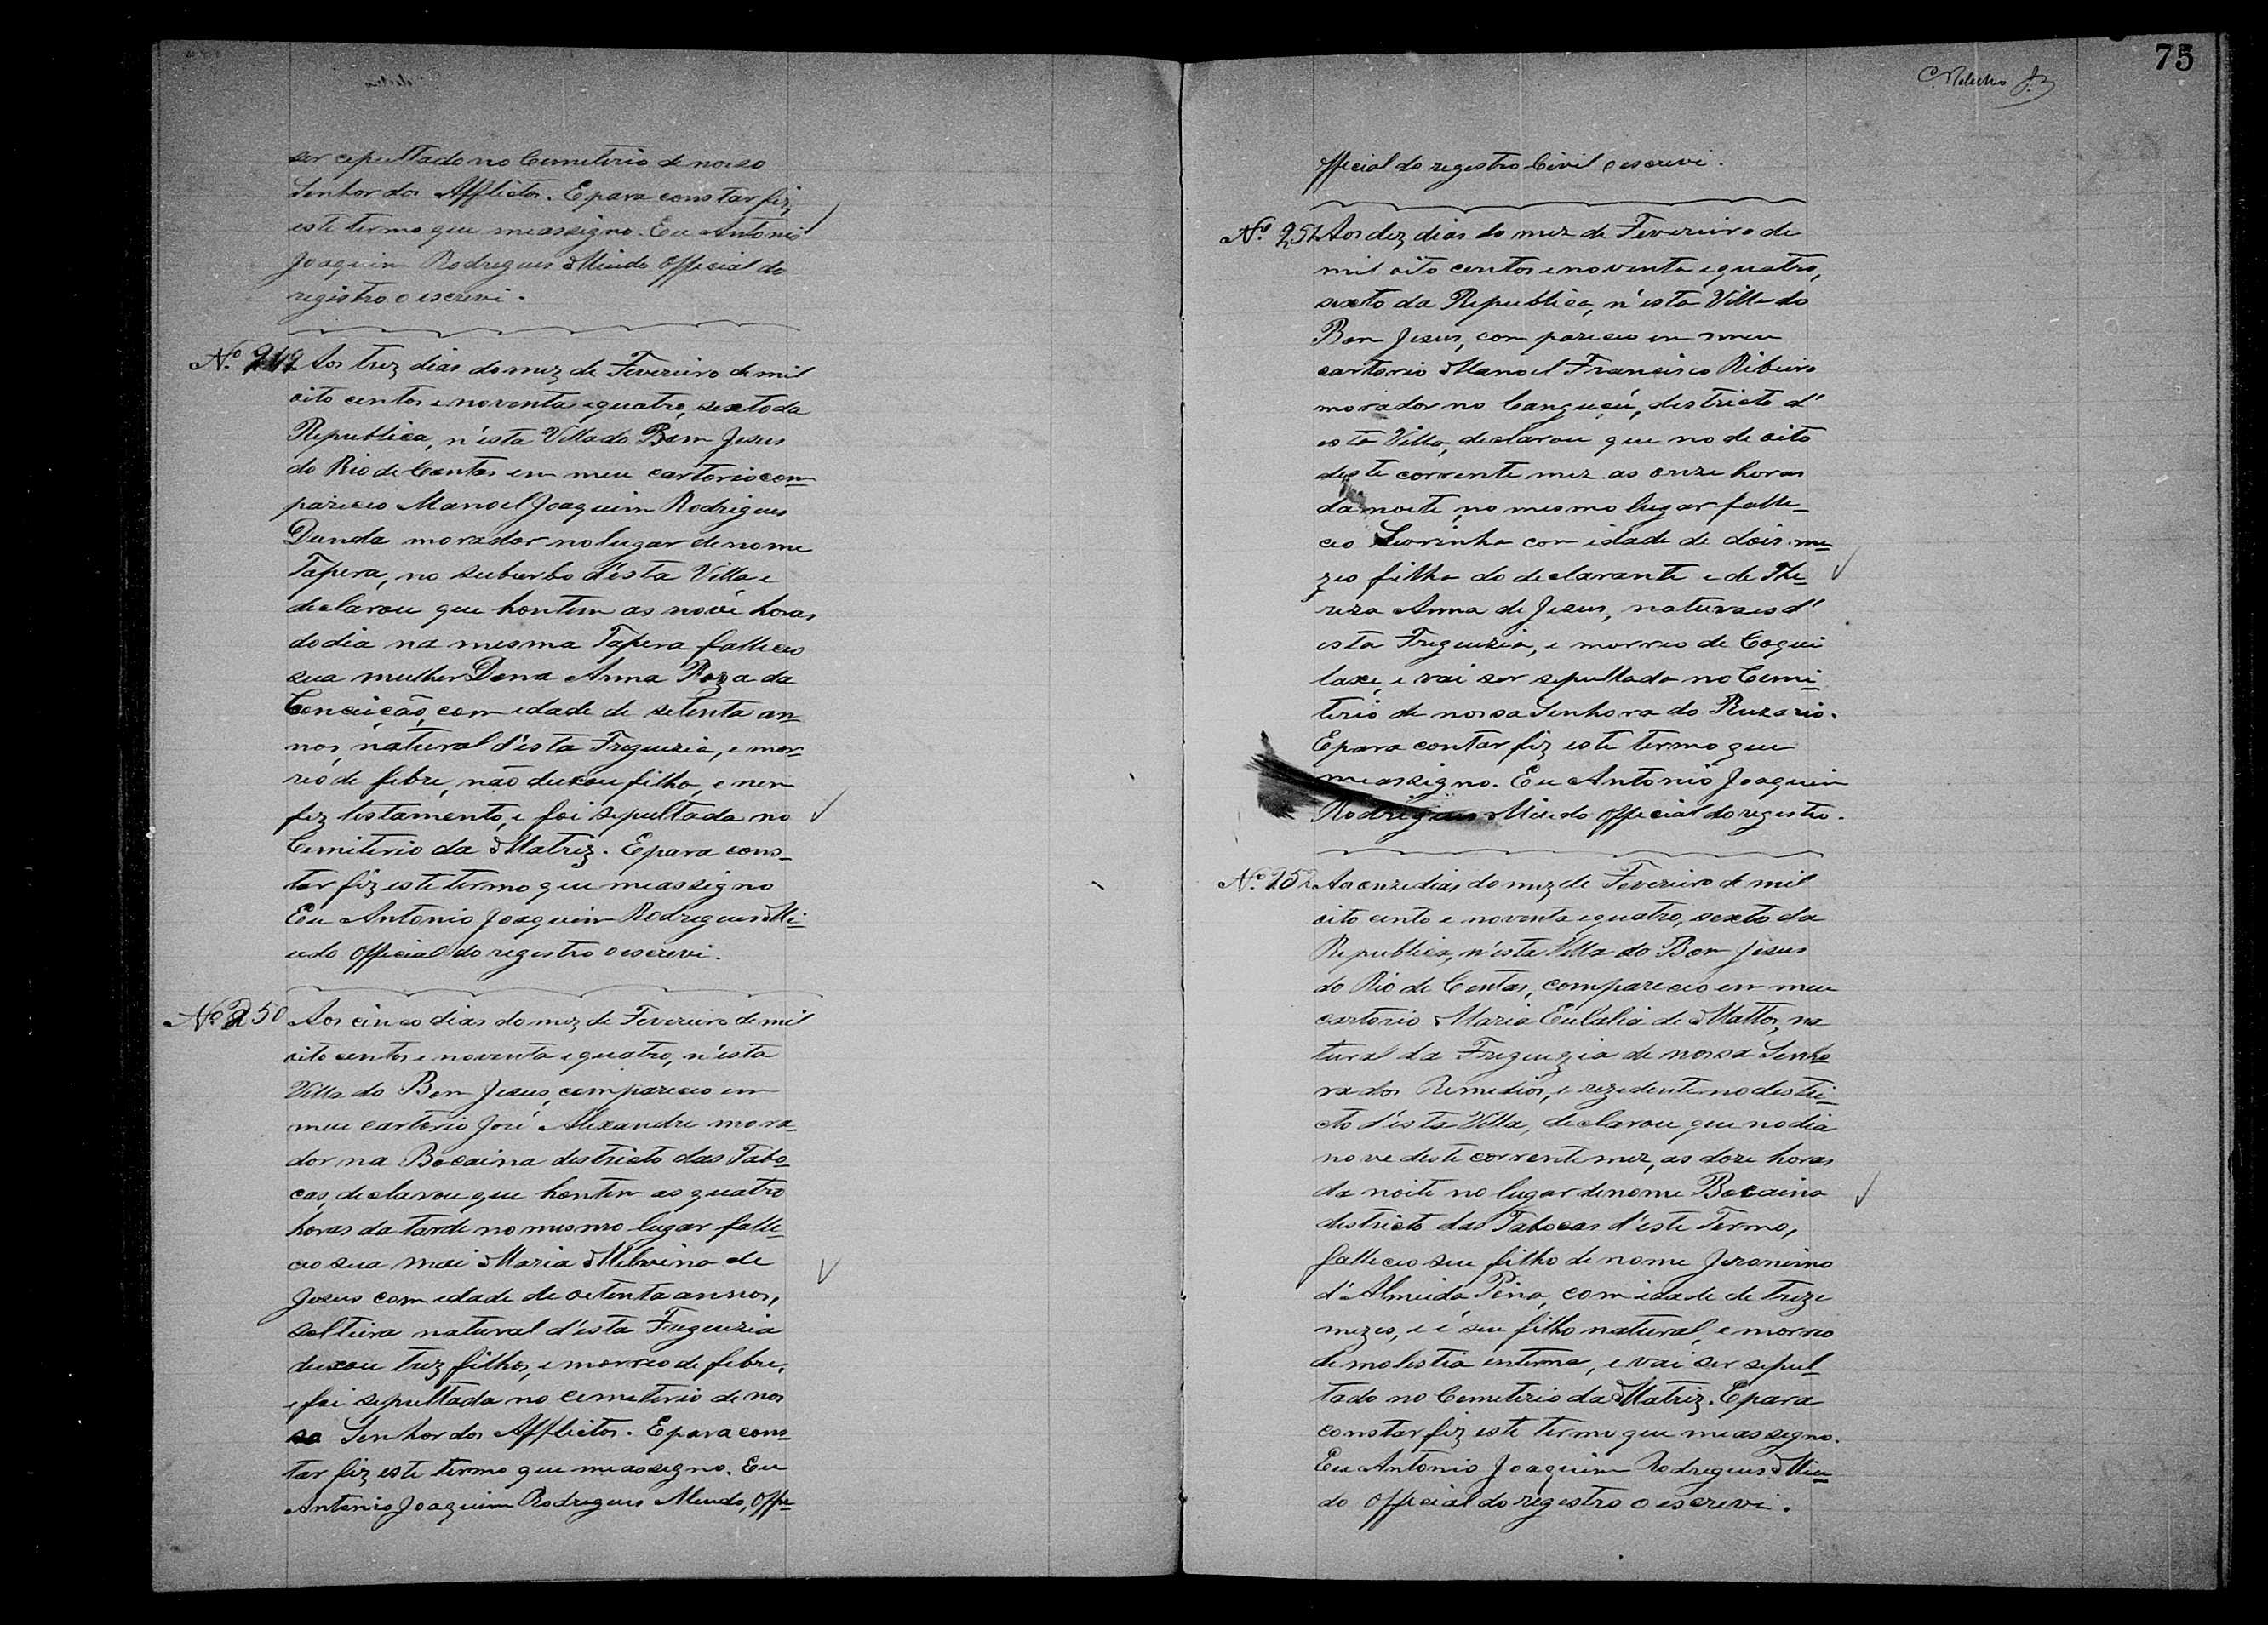 ser cepultado no Cemeterio de nosso
Senhor dos Afflictos. E para constar fiz
este termo que me assigno. Eu Antonio
Joaquim Rodrigues Miudo official do
registro o escrevi.
Nº 249 Aos trez dias do mez de Fevereiro de mil
oito centos e noventa e quatro, sexto da
Republica, n'esta Villa do Bom Jesus
do Rio de Contas em meu cartorio com
pareceo Manoel Joaquim Rodrigues
Dunda morador no lugar de nome
Tapera, no suburbo d'esta Villa e
declarou que hontem as nove horas
do dia na mesma Tapera falleceo
sua mulher Dona Anna Roza da
Conceição, com edade de setenta an-
nos, natural d'esta Freguezia, e mor-
reo de febre, não deixou filho, e nem
fez testamento, e foi sepultada no
Cemiterio da Matriz. E para cons-
tar fiz este termo que me assigno
Eu Antonio Joaquim Rodrigues Mi-
udo official do registro o escrevi.
Nº 250 Aos cinco dias do mez de Fevereiro de mil
oito centos e noventa e quatro, n'esta
Villa do Bom Jesus, compareceo em
meu cartorio José Alexandre mora
dor na Bocaina districto das Tabo-
cas, declarou que hontem as quatro
horas da tarde no mesmo lugar falle-
ceo sua mai Maria de
Jesus com edade de oetenta annos,
solteira natural d'esta Freguezia
deixou trez filhos, e morreo de febre,
e foi sepultada no cemeterio de nos
so Senhor dos Afflictos. E para cons-
tar fiz este termo que me assigno. Eu
Antonio Joaquim Rodrigues Miudo, offi-
75
official do registro Civil o escrevi.
Nº 251 Aos dez dias do mez de Fevereiro de
mil oito centos e noventa e quatro,
sexto da Republica, n'esta Villa do
Bom Jesus, compareceo em meu
cartorio Manoel Francisco Ribeiro
morador no Canguçú, destricto d'
esta Villa, declarou que no de oito
deste corrente mez as onze horas
da noite, no mesmo lugar falle-
ceo com idade de dois me
zes filha do declarante e de The-
reza Anna de Jesus, naturaes d'
esta Freguezia, e morreo de Coqui
laxe, e vai ser sepultada no Cemi-
terio de nossa Senhora do Ruzario.
E para contar fiz este termo que
me assigno. Eu Antonio Joaquim
Rodrigues Miudo official do registro.
Nº 252 Ao onze dias do mez de Fevereiro de mil
oito cento e noventa e quatro, sexto da
Republica, n'esta Villa do Bom Jesus
do Rio de Contas, compareceo em meu
cartorio Maria Eulalia de Mattos, na
tural da Freguezia de nossa Senho
ra dos Remedios, e rezedente no destri-
cto d'esta Villa, declarou que no dia
nove deste corrente mez, as doze horas
da noite no lugar de nome Bocaina
destricto das Tabocas d'este Termo,
falleceo seu filho de nome Jeronimo
d'Almeida Pina, com idade de treze
mezes, e é seu filho natural, e morreo
de molestia enterna, e vai ser sepul-
tado no Cemeterio da Matriz. E para
constar fiz este termo que me assigno.
Eu Antonio Joaquim Rodrigues Miu-
do official do registro o escrevi.